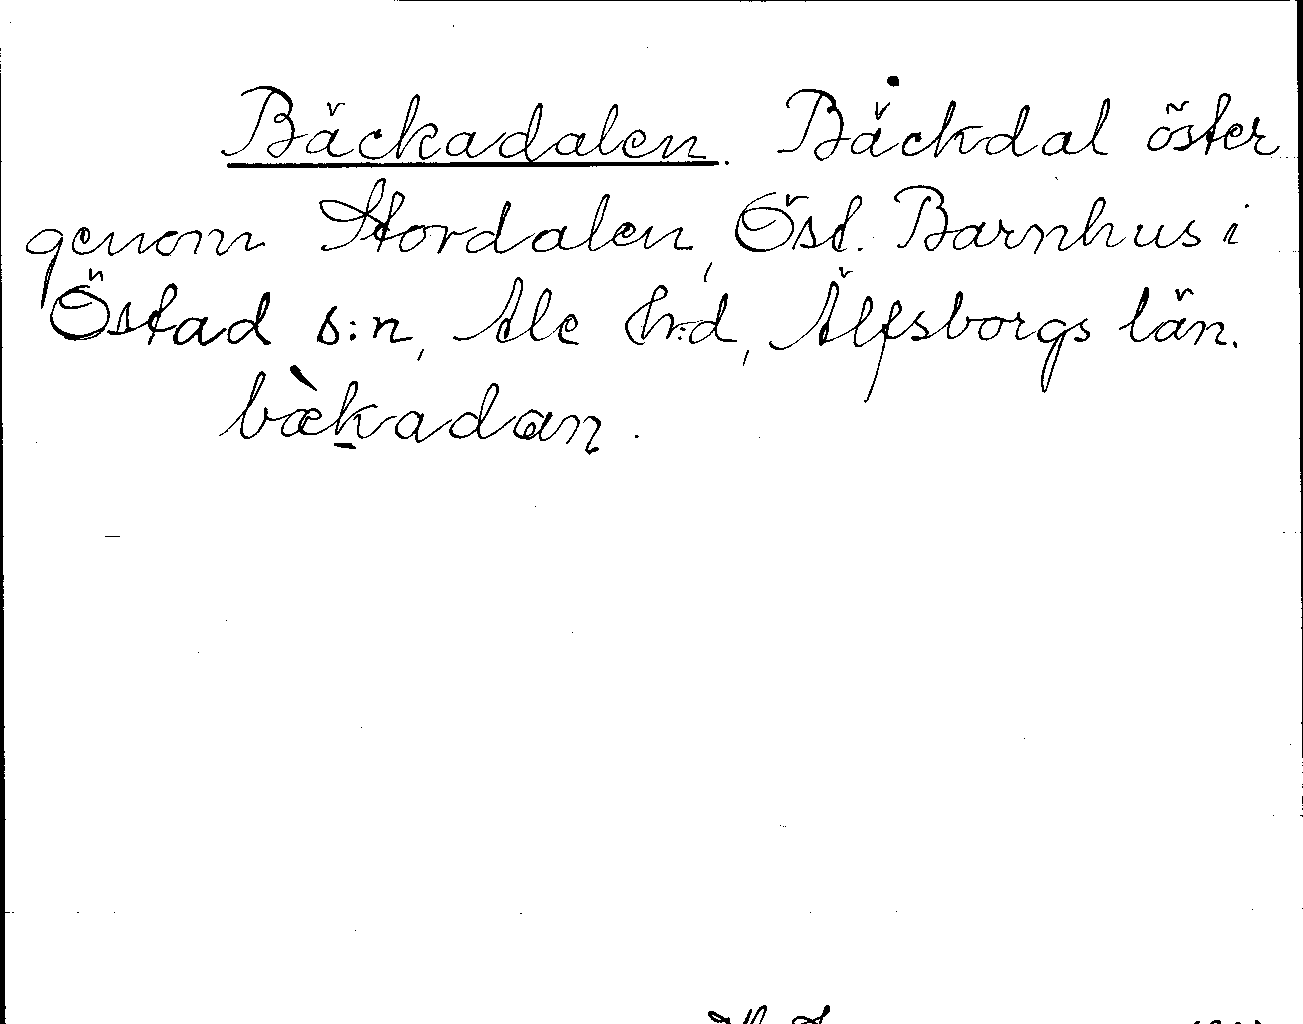 Bäckadalen. Bäckdal öster
genom Stordalen, Öst. Barnhus i
Östad s:n, Ale hrd, Älfsborgs län.
bæ̀kadan.